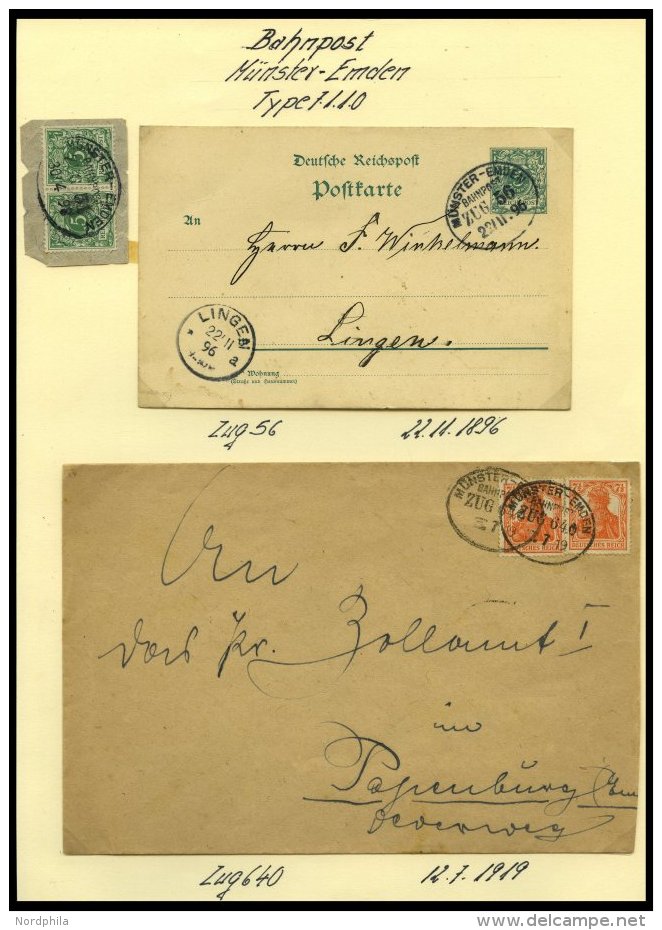 Bahnpost
Münster-Emden
Type 7.1.1.0
MÜNSTER-EMDEN
5
5
Deutsche Reichspost
Postkarte
MÜNSTER-EMDEN
BAHNPOST
ZUG 56
22/11.96
An
Herrn F. Winkelmann.
Lingen.
LINGEN
22/11
96
* a
Wohnung
(Straße und Hausnummer)
Zug 56
22.11.1896
MÜNSTER-
ZUG
MÜNSTER-EMDEN
BAHNPOST
ZUG 640
7 19
DEUTSCHES REICH
An
das Pr. Zollamt I
in
Papenburg (Ems
Zug 640
12.7.1919
Nordphila
www.delcampe.net